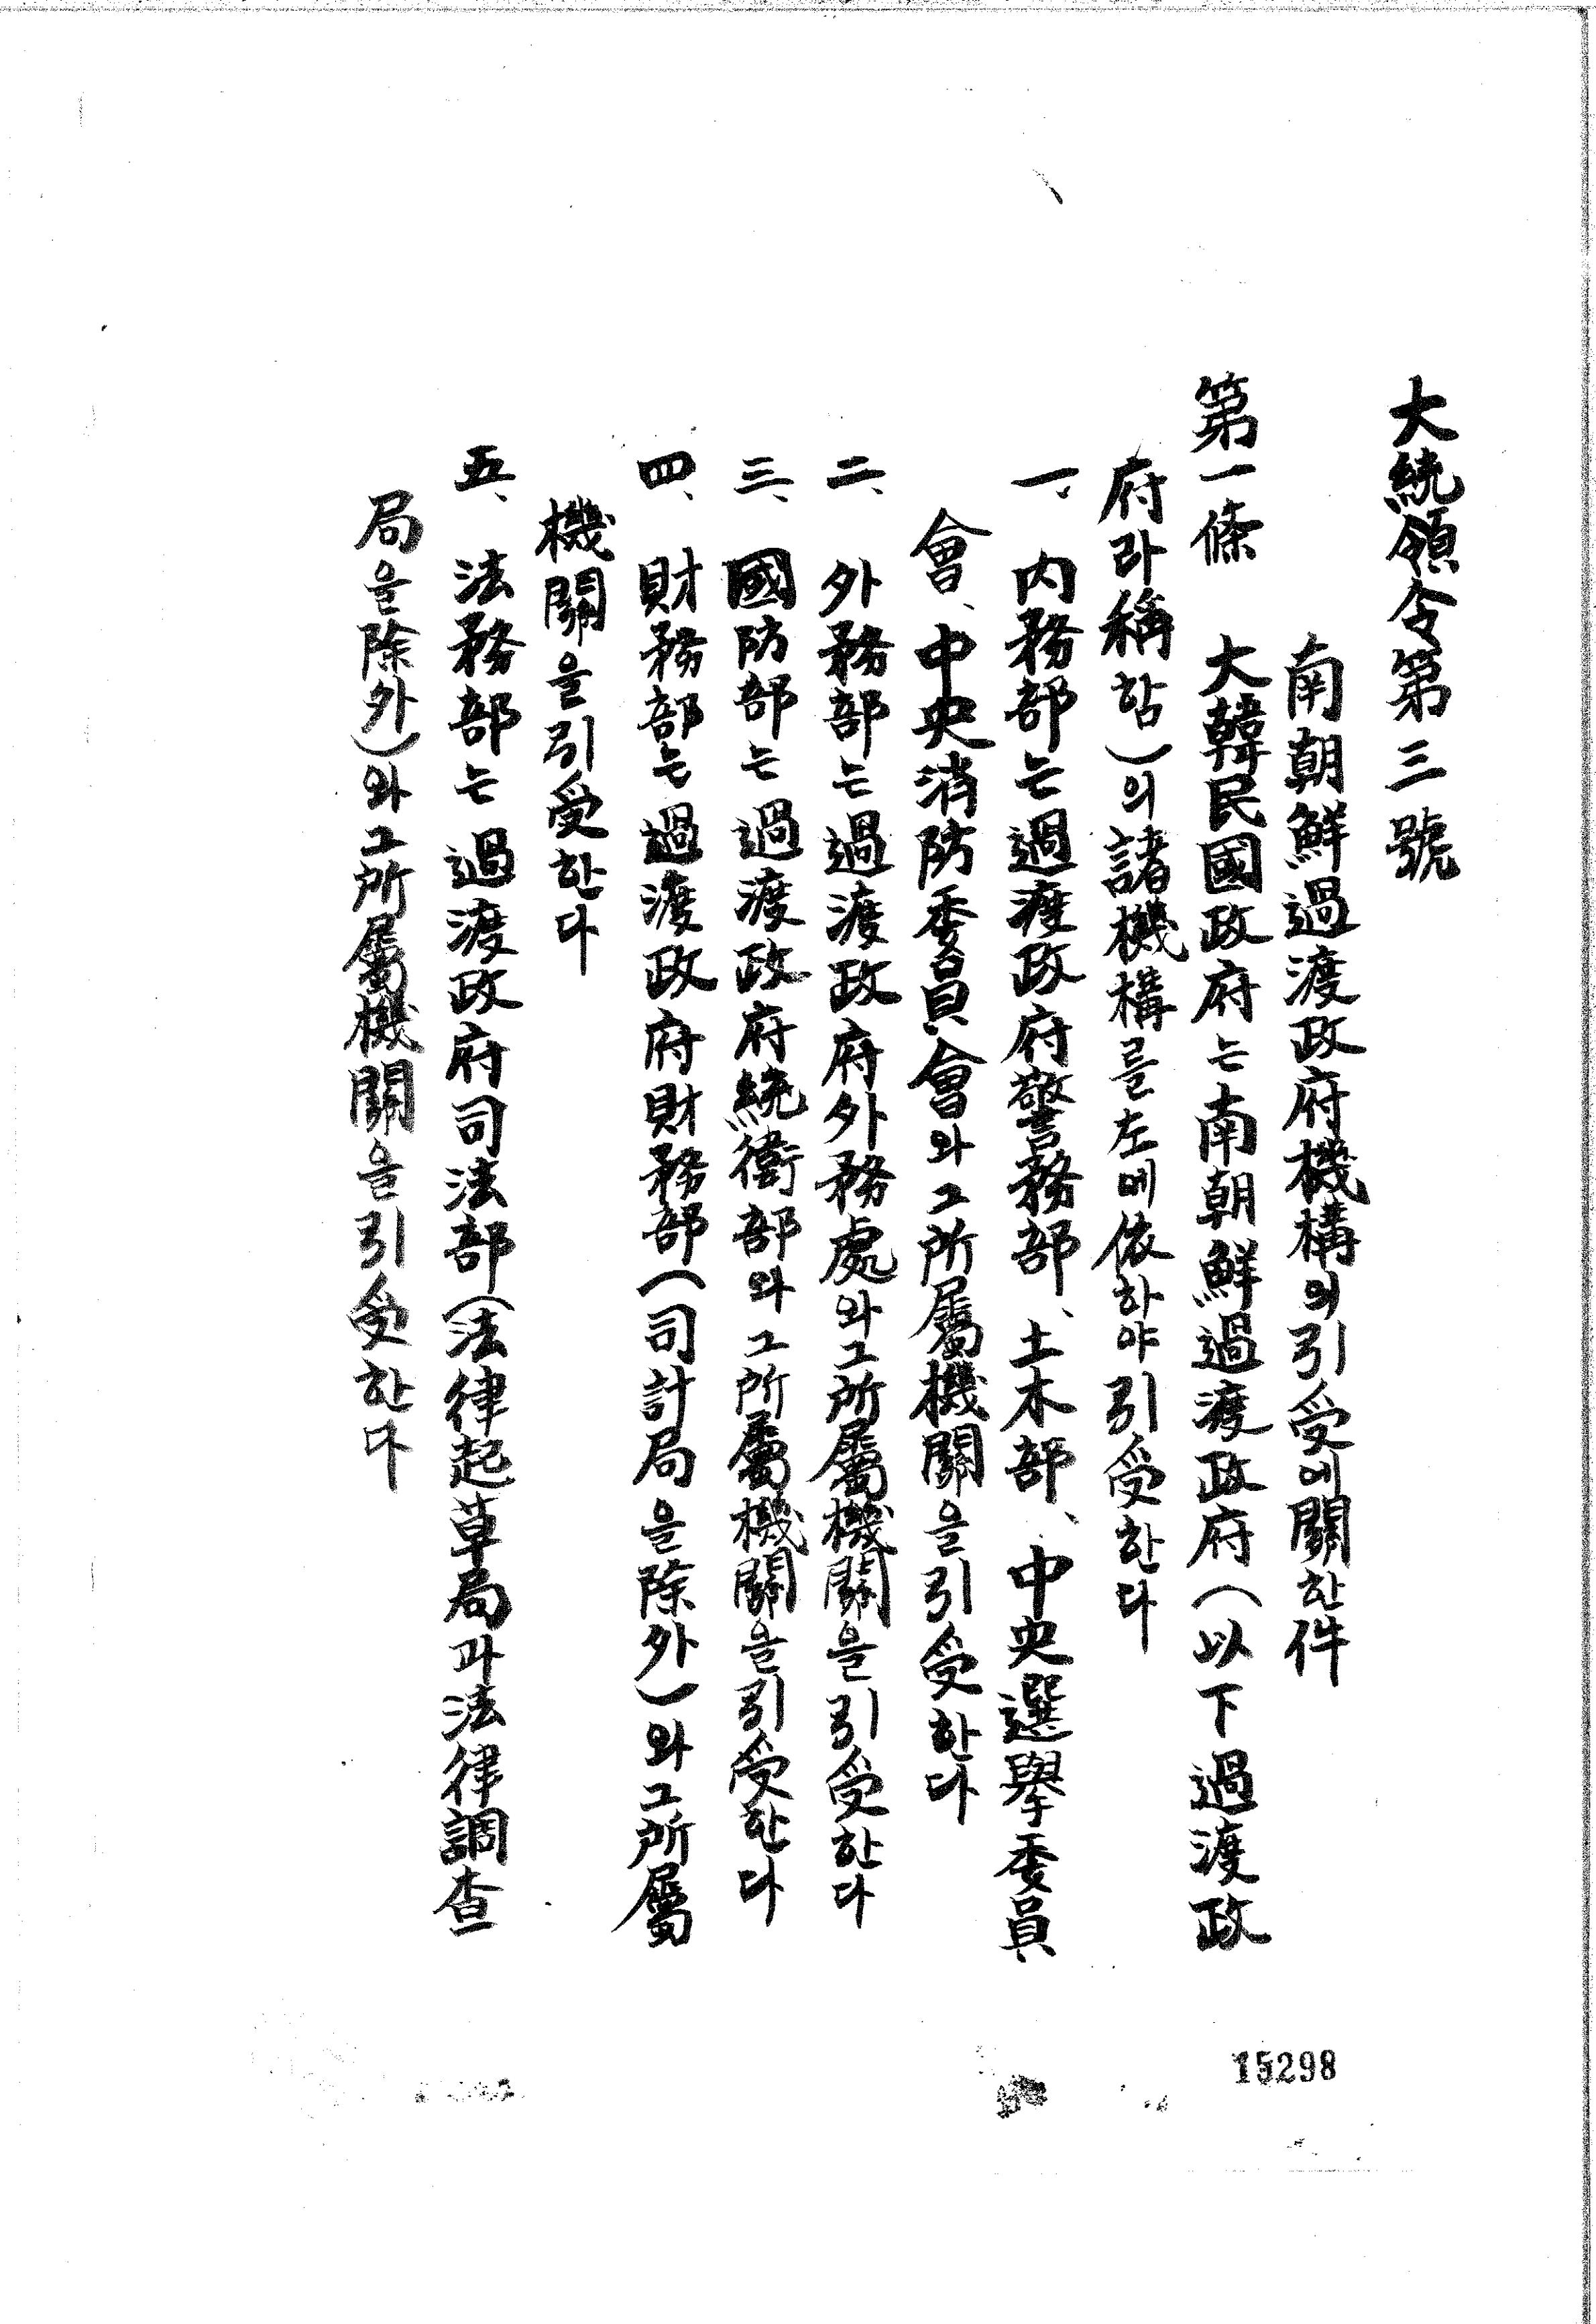 大統領令第三號
南朝鮮過渡政府機構의引受에關한件
第一條 大韓民國政府는南朝鮮過渡政府(以下過渡政
府라稱함)의諸機構를左에依하야引受한다
一、內務部는過渡政府警務部、土木部、中央選擧委員
會、中央消防委員會와그所屬機關을引受한다
二、外務部는過渡政府外務處와그所屬機關을引受한다
三、國防部는過渡政府統衛部와그所屬機關을引受한다
四、財務部는過渡政府財務部(司計局을除外)와그所屬
機關을引受한다
五、法務部는過渡政府司法部(法律起草局과法律調査
局을除外)와그所屬機關을引受한다
15298